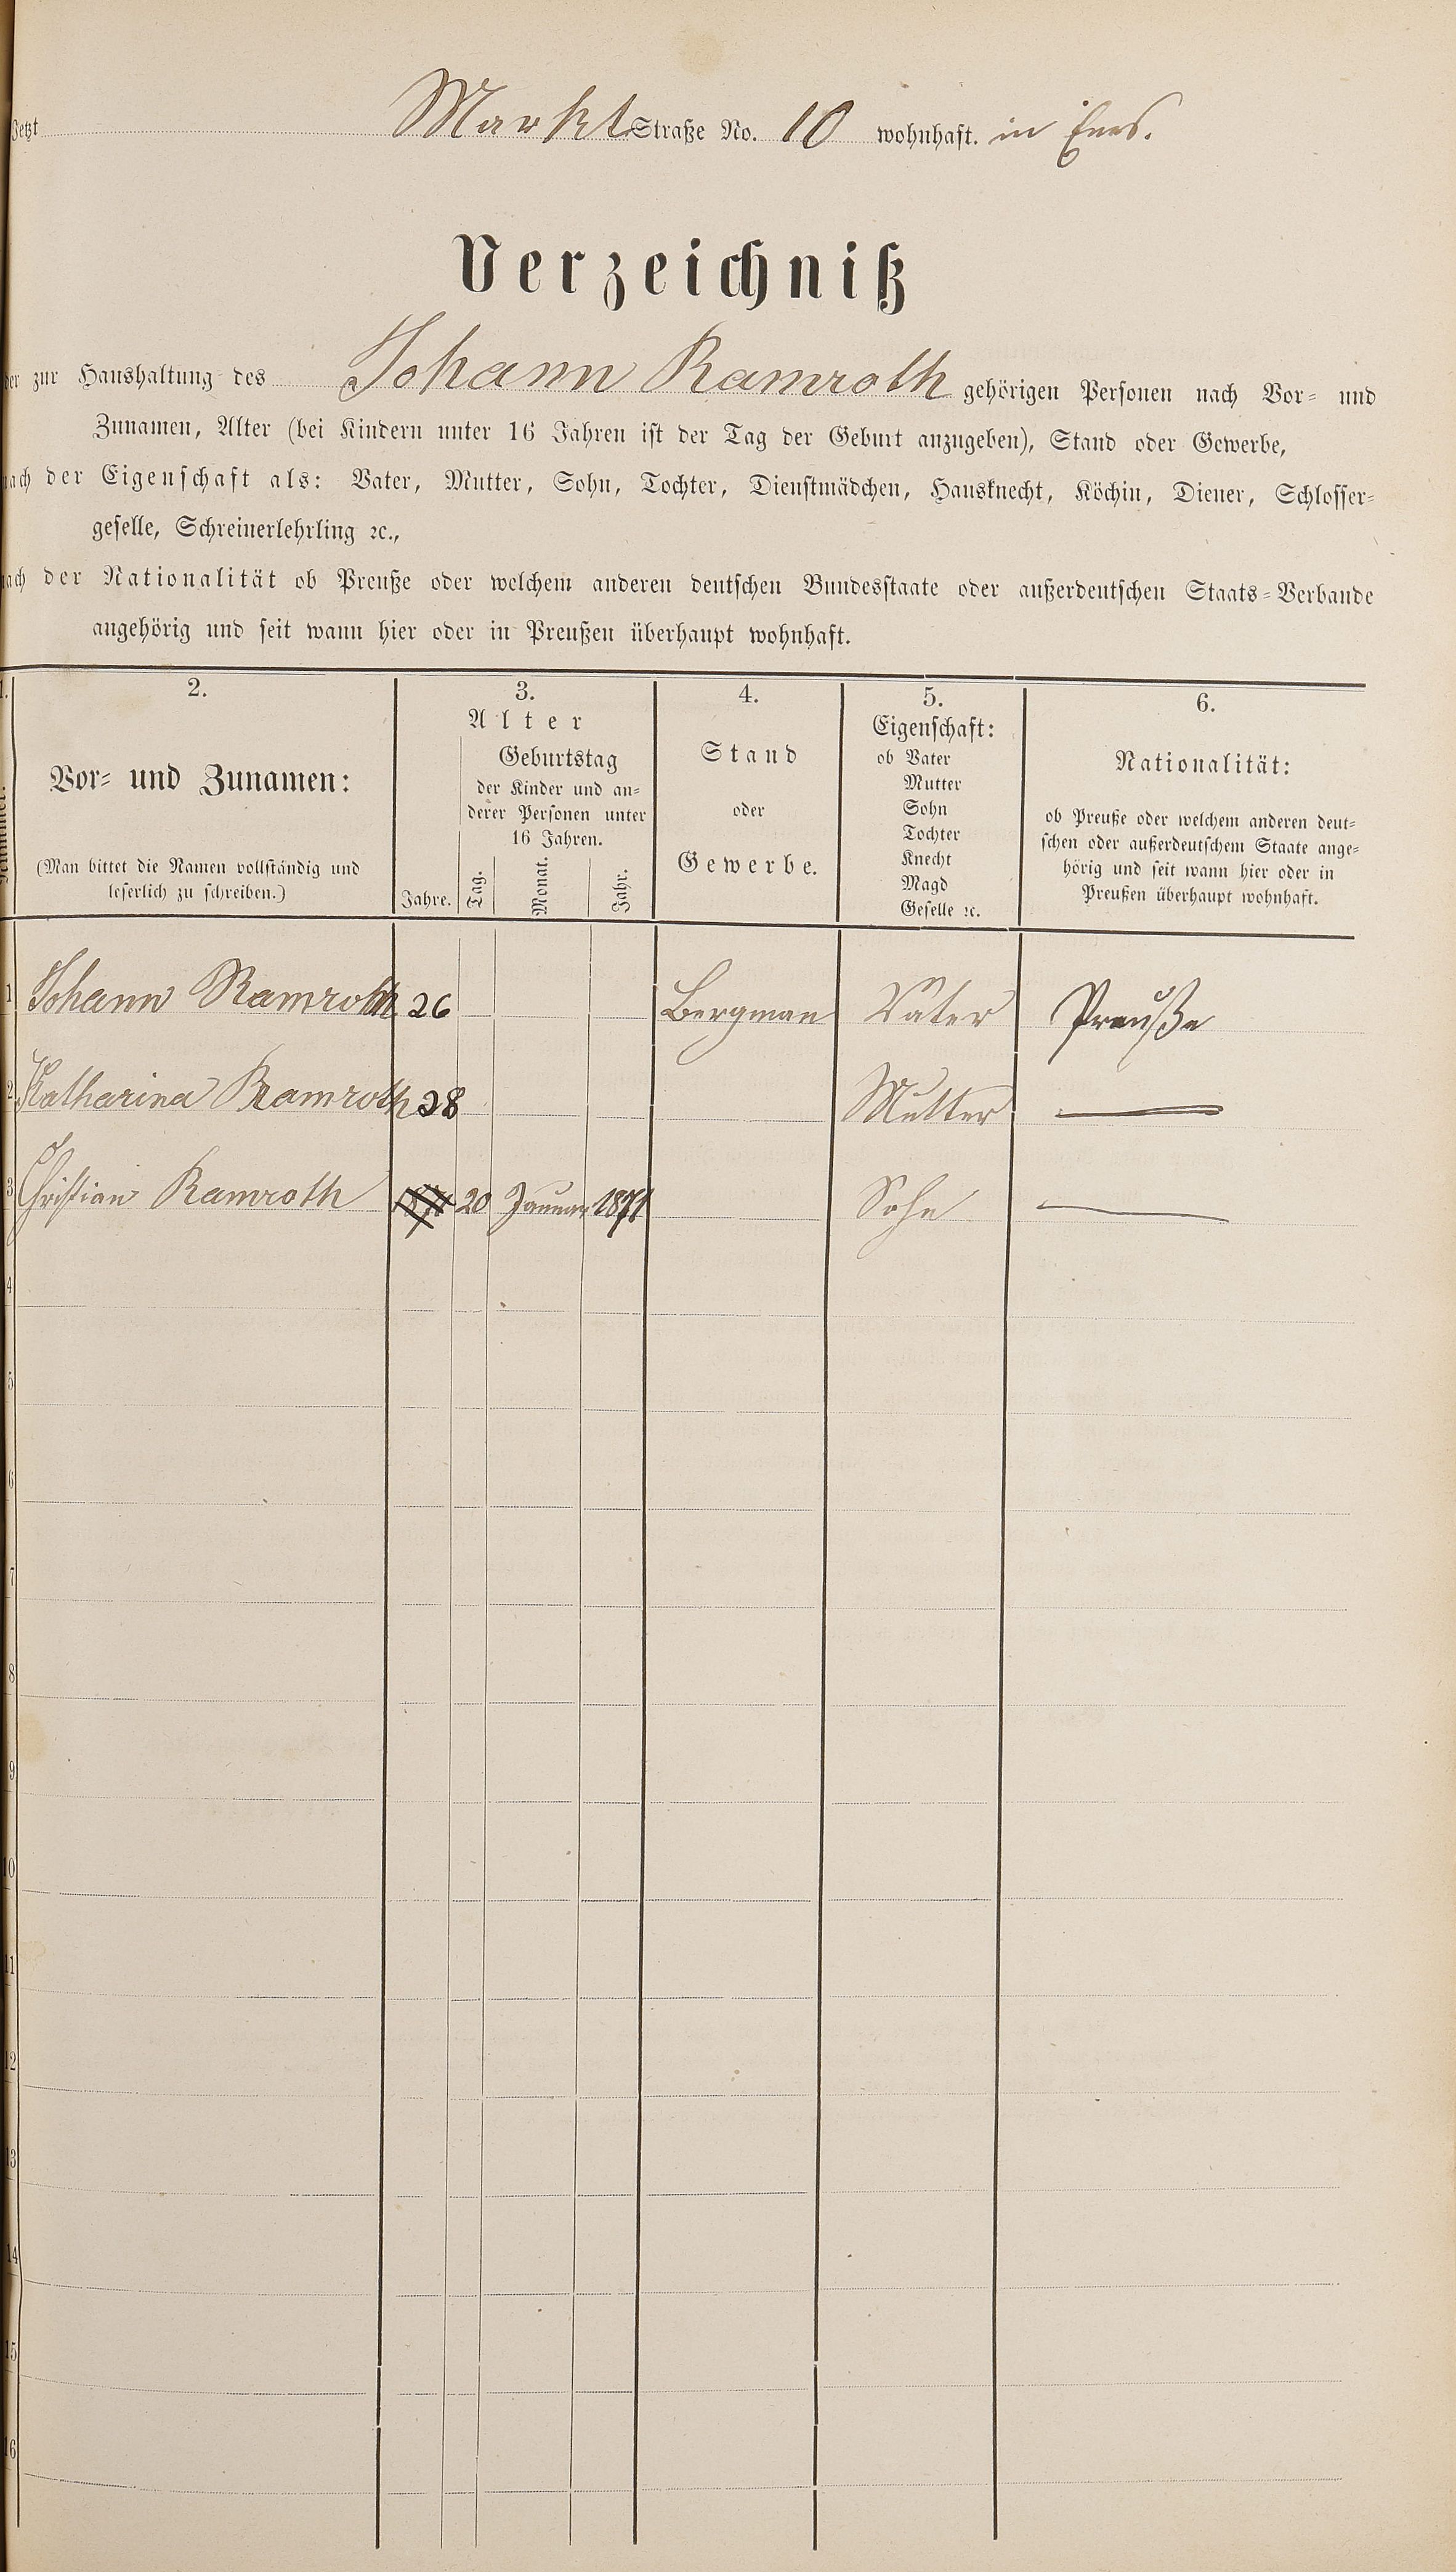 Jetzt Markt Straße No. 10 wohnhaft. in Ems.
Verzeichniß
der zur Haushaltung des Johann Ramroth gehörigen Personen nach Vor- und
Zunamen, Alter (bei Kindern unter 16 Jahren ist der Tag der Geburt anzugeben), Stand oder Gewerbe,
nach der Eigenschaft als: Vater, Mutter, Sohn, Tochter, Dienstmädchen, Hausknecht, Köchin, Diener, Schlosser-
geselle, Schreinerlehrling ꝛc.,
nach der Nationalität ob Preuße oder welchem anderen deutschen Bundesstaate oder außerdeutschen Staats-Verbande
angehörig und seit wann hier oder in Preußen überhaupt wohnhaft.
1. 2. 3. 4. 5. 6.
Nummer.
Vor- und Zunamen:
(Man bittet die Namen vollständig und
leserlich zu schreiben.)
Alter
Jahre.
Geburtstag
der Kinder und an-
derer Personen unter
16 Jahren.
Tag. Monat. Jahr.
Stand
oder
Gewerbe.
Eigenschaft:
ob Vater
Mutter
Sohn
Tochter
Knecht
Magd
Geselle ꝛc.
Nationalität:
ob Preuße oder welchem anderen deut-
schen oder außerdeutschem Staate ange-
hörig und seit wann hier oder in
Preußen überhaupt wohnhaft.
1 Johann Ramroth 26 Bergman Vater Preuße
2 Katharina Ramroth 28 Mutter —
3 Christian Ramroth 20 Januar 1871 Sohn —
4
5
6
7
8
9
10
11
12
13
14
15
16